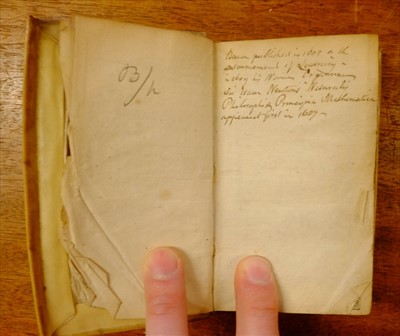 B/h
Bacon published in 1605 on the
advancement of Learning -
in 1620 his Novum Organum
Sir Isaac Newton's Naturalis
Philosophiæ Principia Mathematica
appeared first in 1687 -